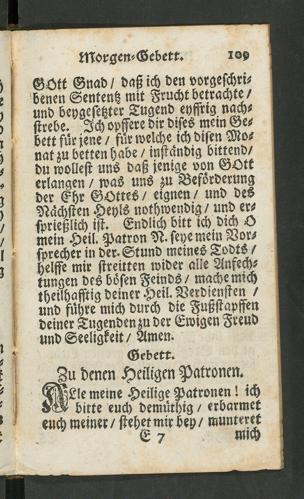 Morgen-Gebett. 109
GOtt Gnad / daß ich den vorgeschri-
benen Sententz mit Frucht betrachte /
und beygesetzter Tugend eyffrig nach-
strebe. Ich opffere dir dises mein Ge-
bett für jene / für welche ich disen Mo-
nat zu betten habe / inständig bittend /
du wollest uns daß jenige von GOtt
erlangen / was uns zu Beförderung
der Ehr GOttes / eignen / und des
Nächsten Heyls nothwendig / und er-
sprießlich ist. Endlich bitt ich dich O
mein Heil. Patron N. seye mein Vor-
sprecher in der Stund meines Todts /
helffe mir streitten wider alle Anfech-
tungen des bösen Feinds / mache mich
theilhafftig deiner Heil. Verdiensten /
und führe mich durch die Fußstapffen
deiner Tugenden zu der Ewigen Freud
und Seeligkeit / Amen.
Gebett.
Zu denen Heiligen Patronen.
ALle meine Heilige Patronen ! ich
bitte euch demüthig / erbarmet
euch meiner / stehet mir bey / munteret
E 7 mich